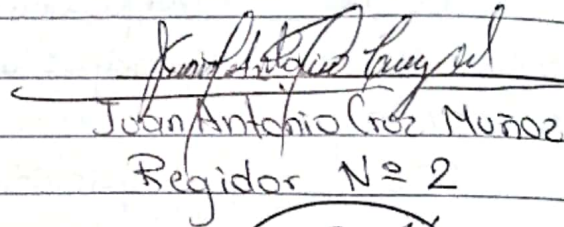 Juan Antonio Cruz Muñoz
Regidor Nº 2